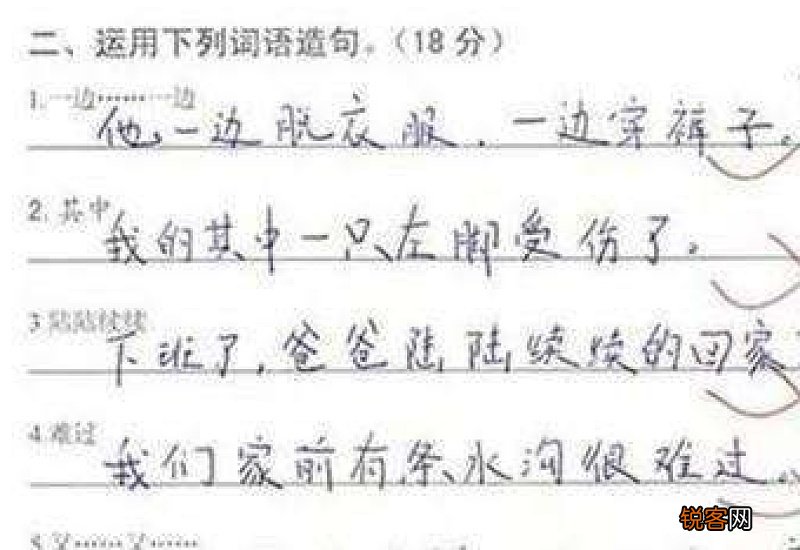 二、运用下列词语造句。(18分)
1.一边……一边
他一边脱衣服.一边穿裤子。
2.其中
我的其中一只左脚受伤了。
3.陆陆续续
下班了,爸爸陆陆续续的回家
4.难过
我们家前有条水沟很难过。
5.又……又……
锐客网